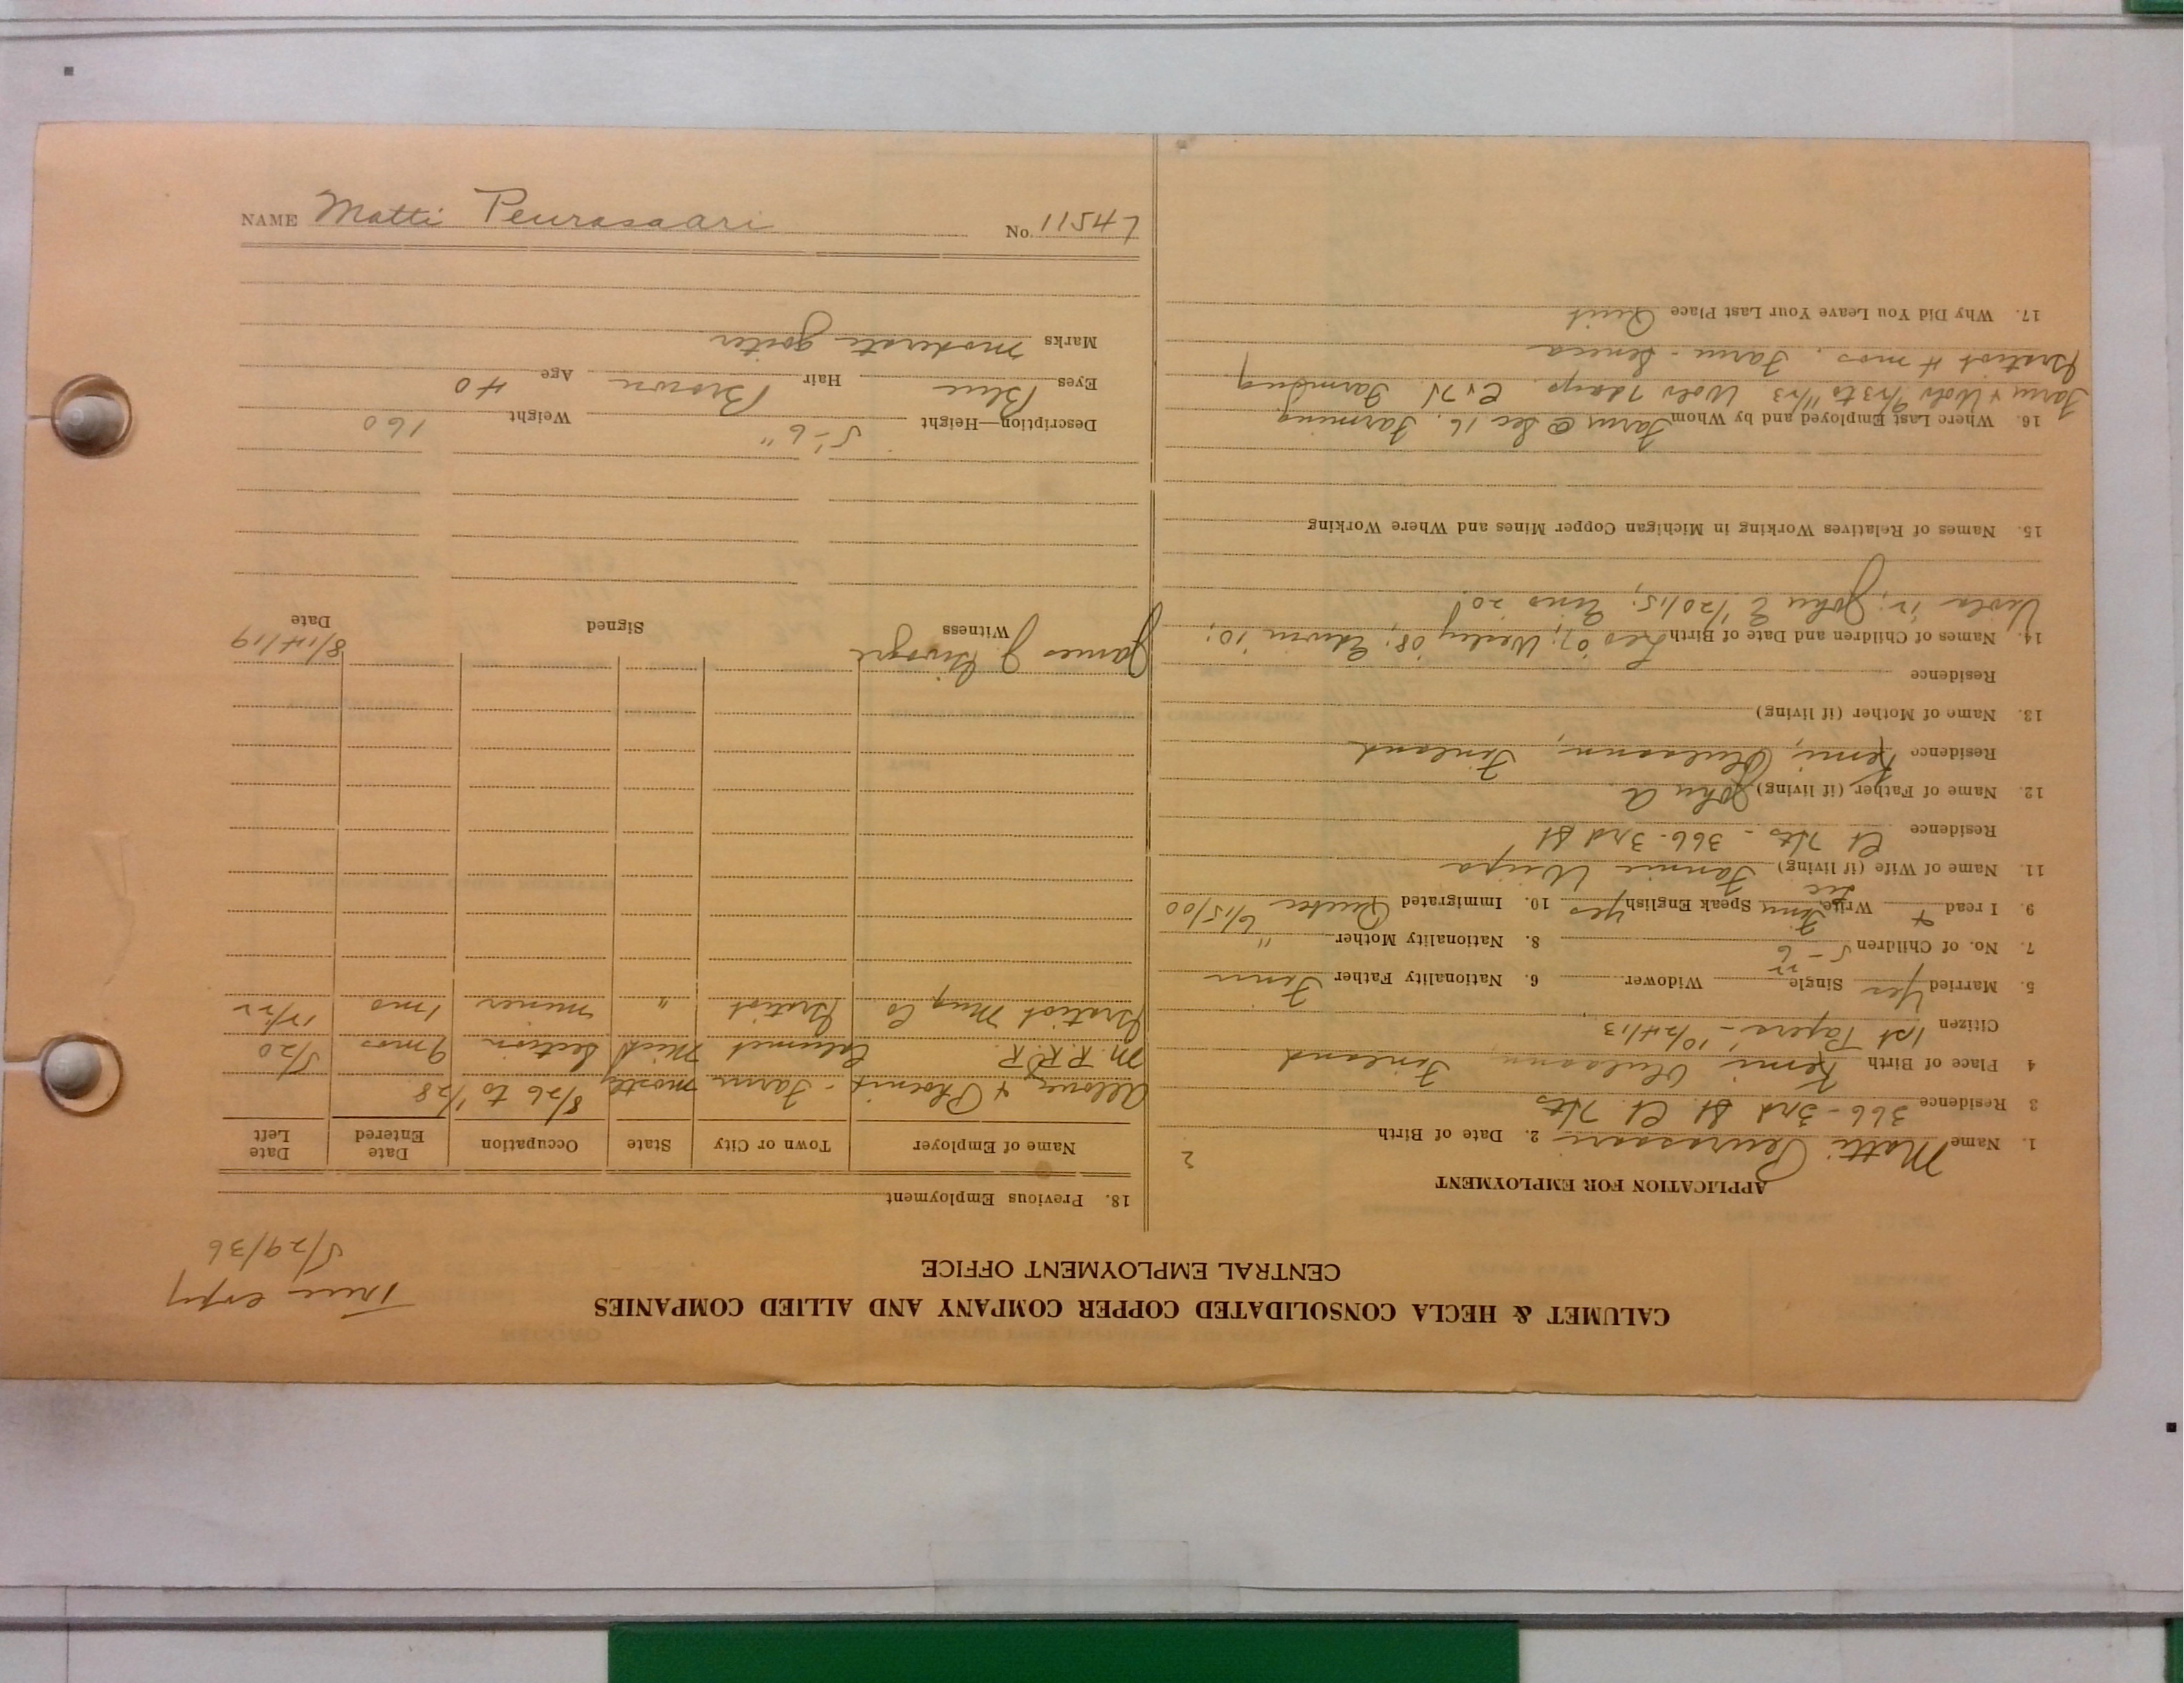 CALUMET & HECLA CONSOLIDATED COPPER COMPANY AND ALLIED COMPANIES
CENTRAL EMPLOYMENT OFFICE
True copy
5/29/36
APPLICATION FOR EMPLOYMENT
1. Name Matti Peurasaari 2. Date of Birth
3 Residence 366-3rd St. Cl. Hts
4 Place of Birth Kemi Oulaann, Finland
Citizen 1st Papers - 10/24/13
5. Married Yes Single Widower 6. Nationality Father Finn
7. No. of Children 5-6 8. Nationality Mother "
9. I read + Write Finn Speak English Yes 10. Immigrated Quebec 6/15/00
11. Name of Wife (if living) Fannie
Residence Cl Hts - 366-3rd St
12. Name of Father (if living) John A.
Residence Kemi, Oulaann, Finland
13. Name of Mother (if living)
Residence
14. Names of Children and Date of Birth Leo 07; Wesley 08; Edwin 10;
John E 1/20/15; 20.
15. Names of Relatives Working in Michigan Copper Mines and Where Working
16. Where Last Employed and by Whom Farm @ Sec 16. Farming
Farm & 9/23 to 11/23 7 days. Farming
Gratiot 4 mos. Farm - Seneca
17. Why Did You Leave Your Last Place Quit
18. Previous Employment
Name of Employer Town or City State Occupation Date Entered Date Left
Allouez & Phoenix - Farm mostly 8/26 to 1/28
M.R.R.R. Calumet Mich Section 9 mos 5/20
Gratiot Mng Co Gratiot " miner 1 mo 12/22
James J 8/14/19
Witness Signed Date
Description—Height 5'-6" Weight 160
Eyes Blue Hair Brown Age 40
Marks moderate goiter
NAME Matti Peurasaari No. 11547